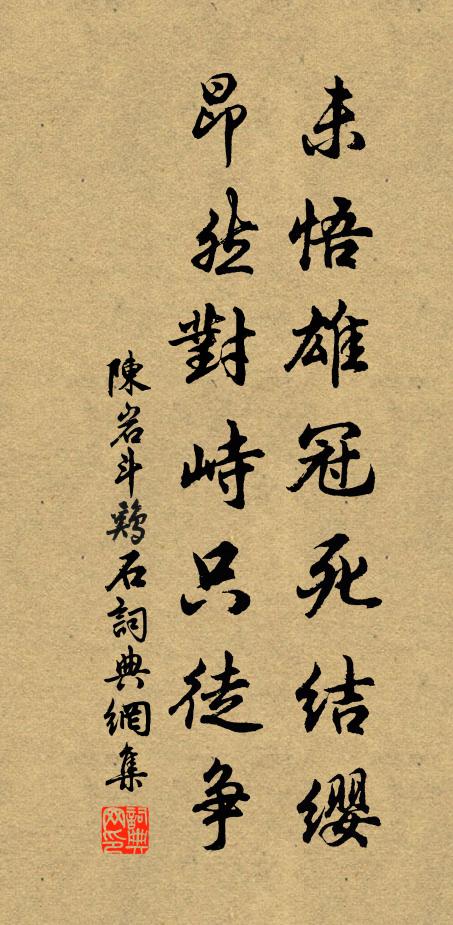 未悟雄冠死结缨
昂然對峙只徒争
陳岩斗鷄石詞典網集
詞典网印